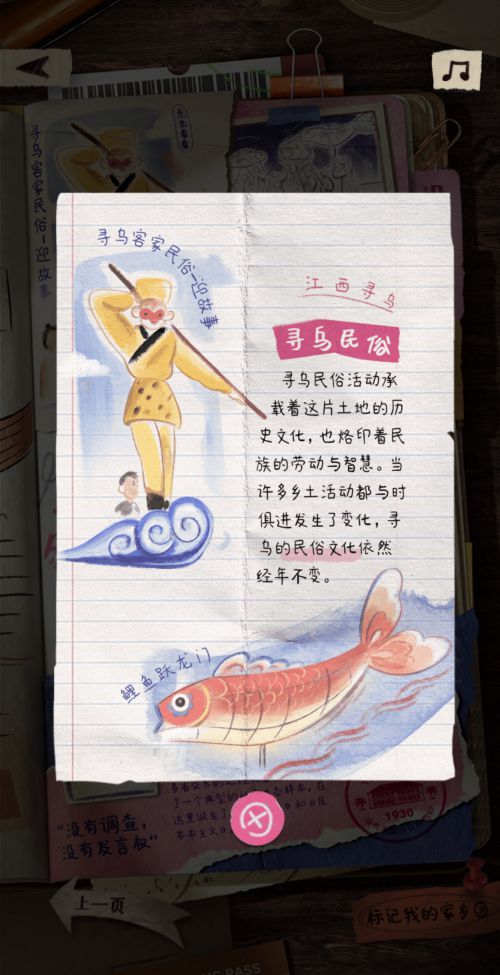 寻乌客家民俗—迎故事
寻乌客家民俗—迎故事
江西寻乌
寻乌民俗
寻乌民俗活动承
载着这片土地的历
史文化，也烙印着民
族的劳动与智慧。当
许多乡土活动都与时
俱进发生了变化，寻
乌的民俗文化依然
经年不变。
鲤鱼跃龙门
了一个典型的
这里诞生了
本本主义
“没有调查，
没有发言权”
1930
上一页
标记我的家乡
PASS